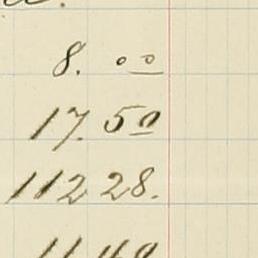 8. 00
17. 50
112 28.